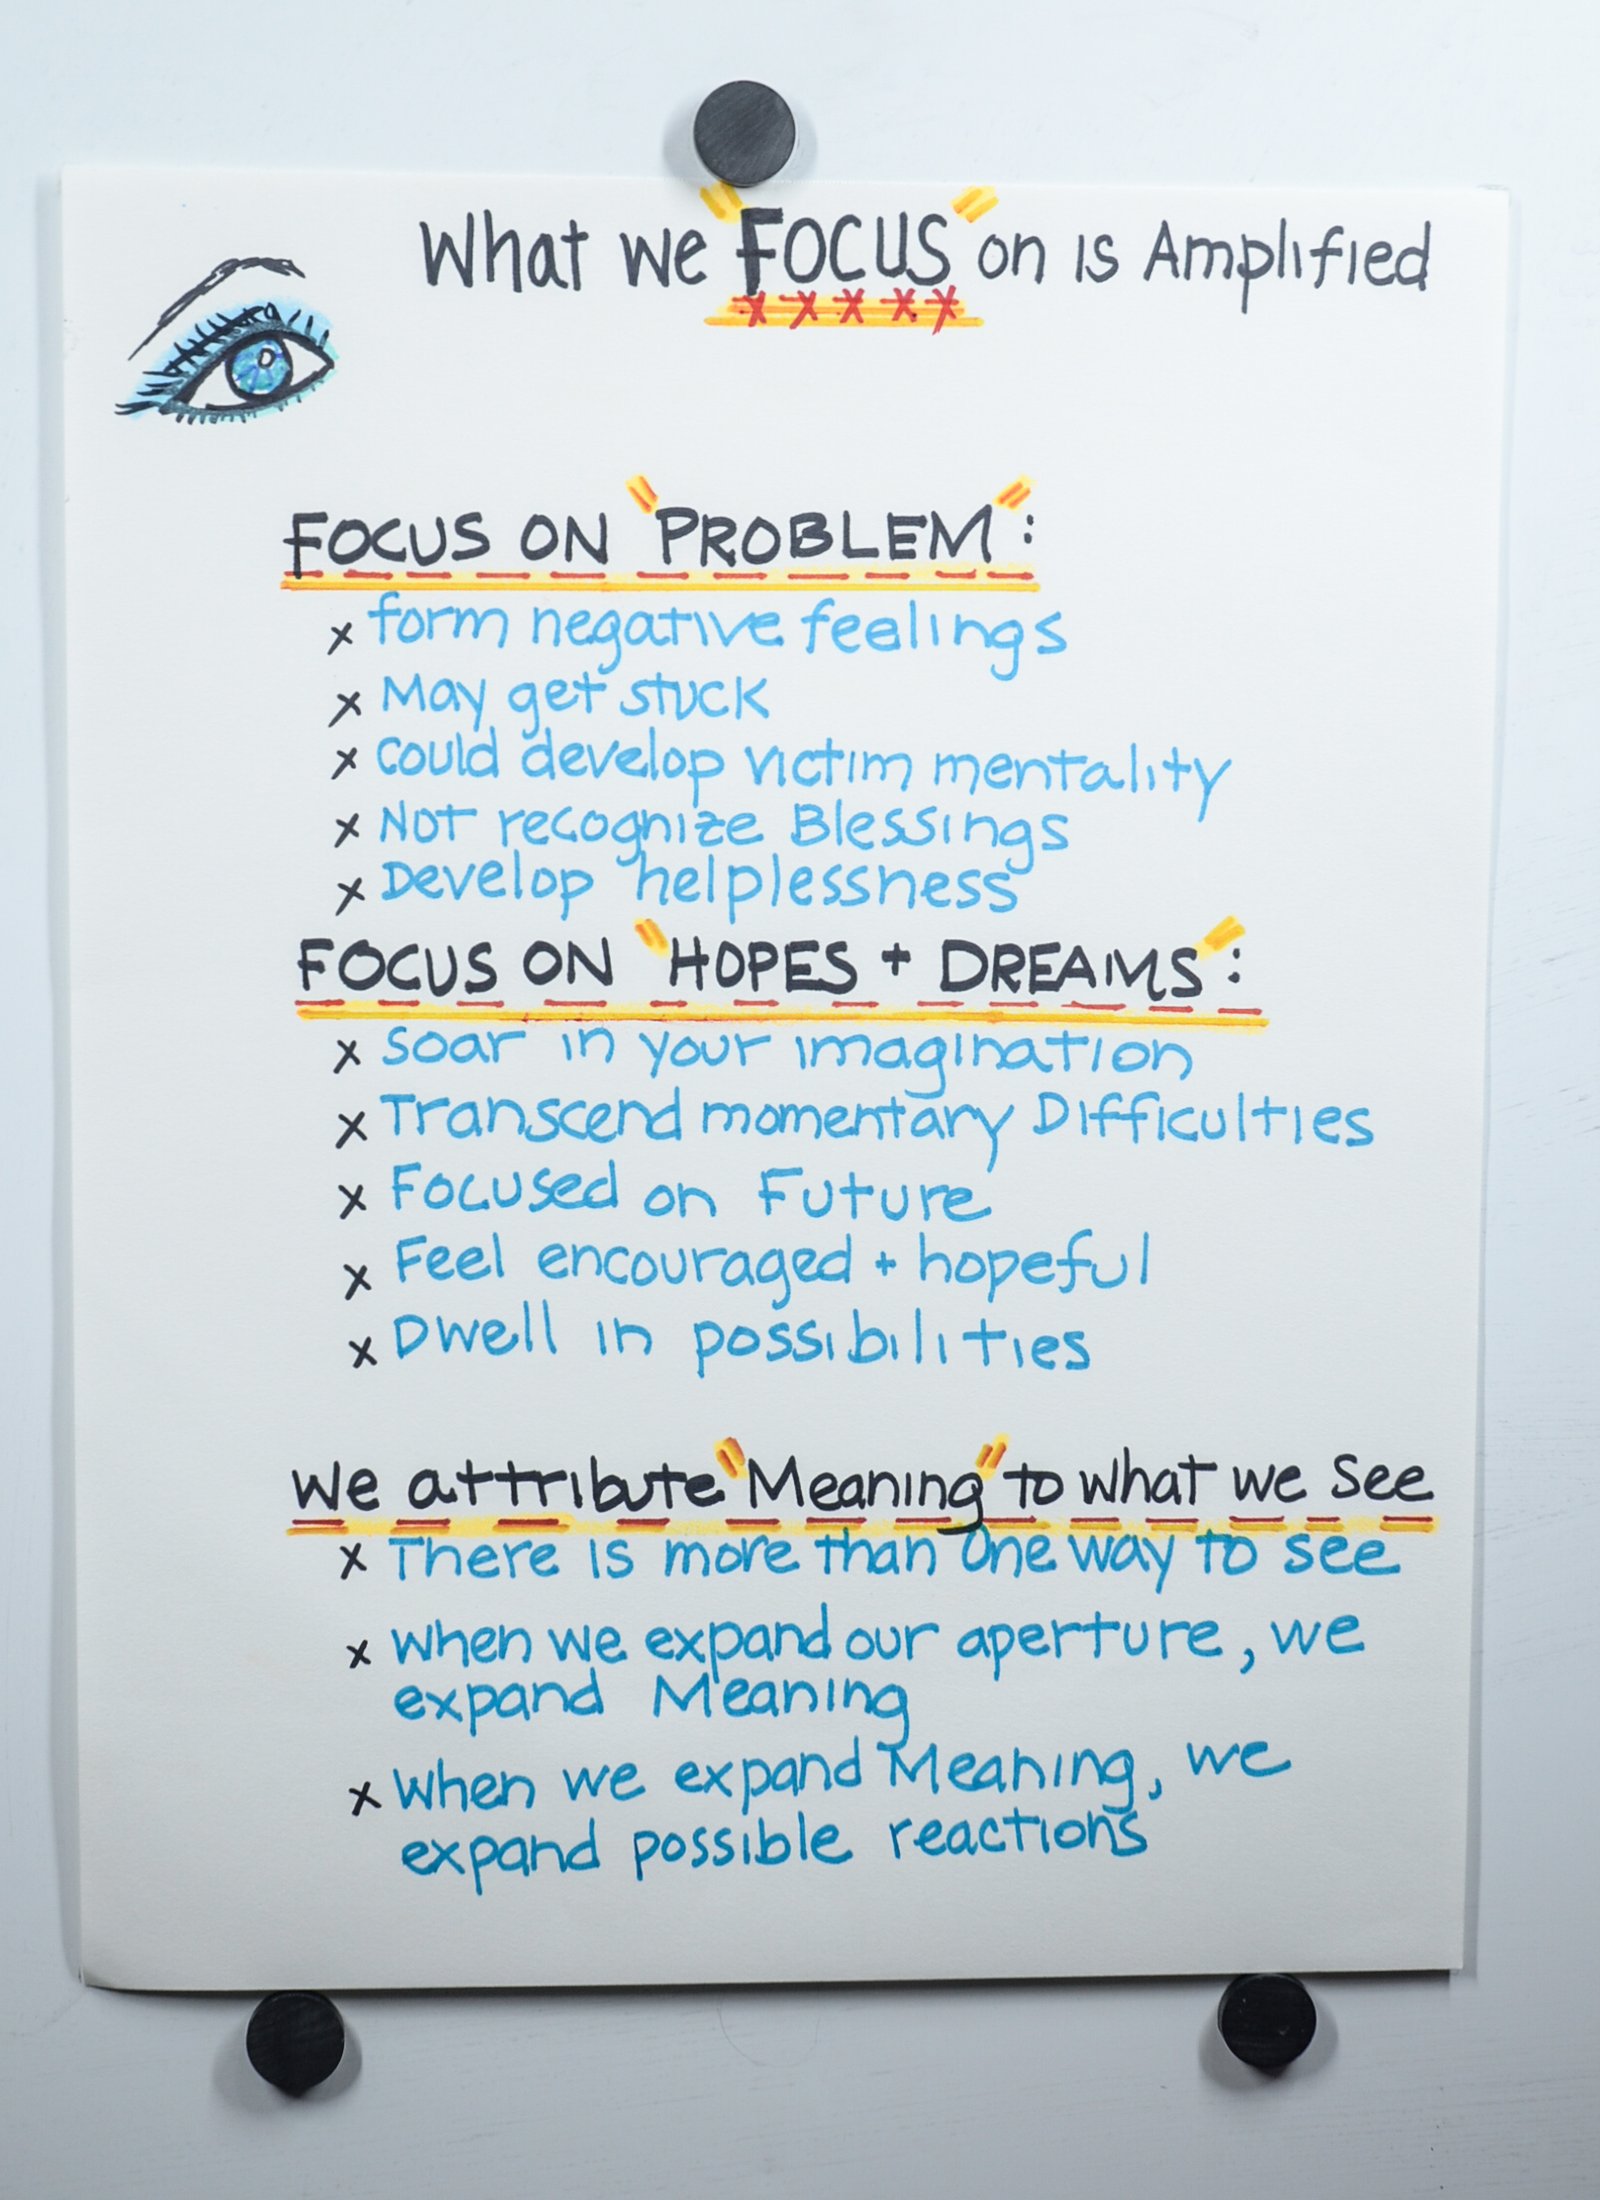 What we "FOCUS" on is Amplified
FOCUS ON "PROBLEM":
x form negative feelings
x May get stuck
x Could develop victim mentality
x Not recognize Blessings
x Develop "helplessness"
FOCUS ON "HOPES + DREAMS":
x Soar in your imagination
x Transcend momentary Difficulties
x Focused on Future
x Feel encouraged + hopeful
x Dwell in possibilities
We attribute "Meaning" to what we see
x There is more than One way to see
x When we expand our aperture, we
expand Meaning
x When we expand Meaning, we
expand possible reactions